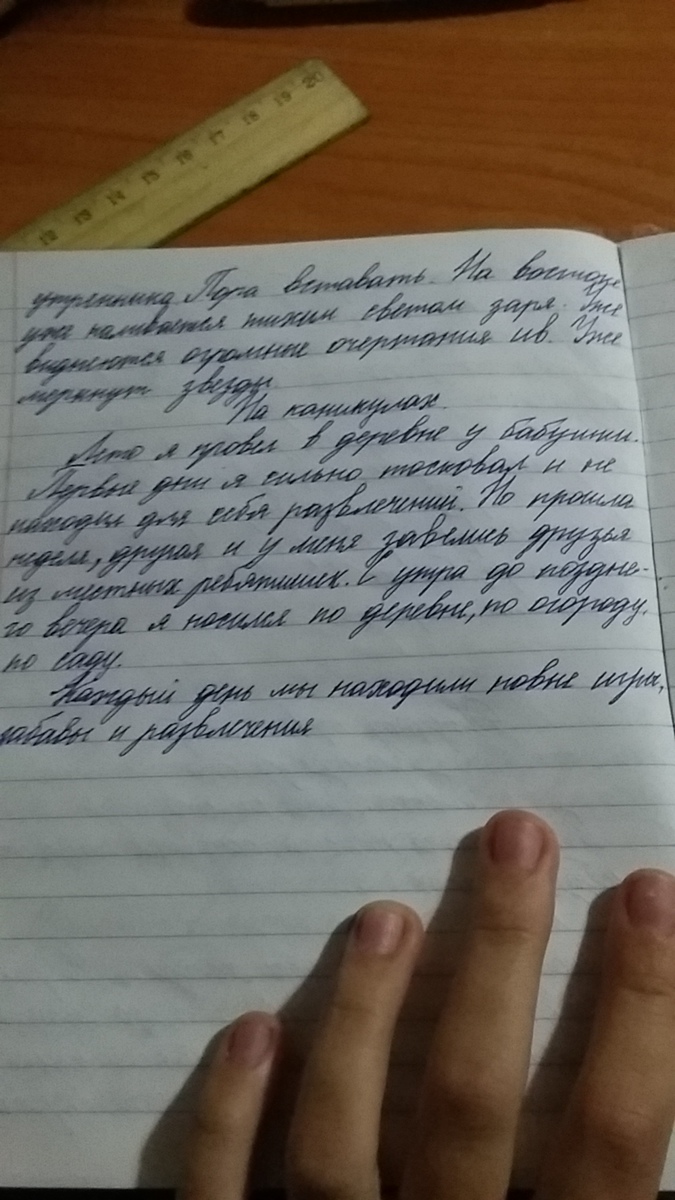 20 19 18 17 16 15 14 13 12
утренника Пора вставать. На востоке
уже наливается тихим светом заря. Уже
виднеются огромные очертания ив. Уже
меркнут звезды
На каникулах.
Лето я провел в деревне у бабушки.
Первые дни я сильно тосковал и не
находил для себя развлечений. Но прошла
неделя, другая и у меня завелись друзья
из местных ребятишек. С утра до поздне-
го вечера я носился по деревне, по огороду,
по саду.
Каждый день мы находили новые игры,
забавы и развлечения